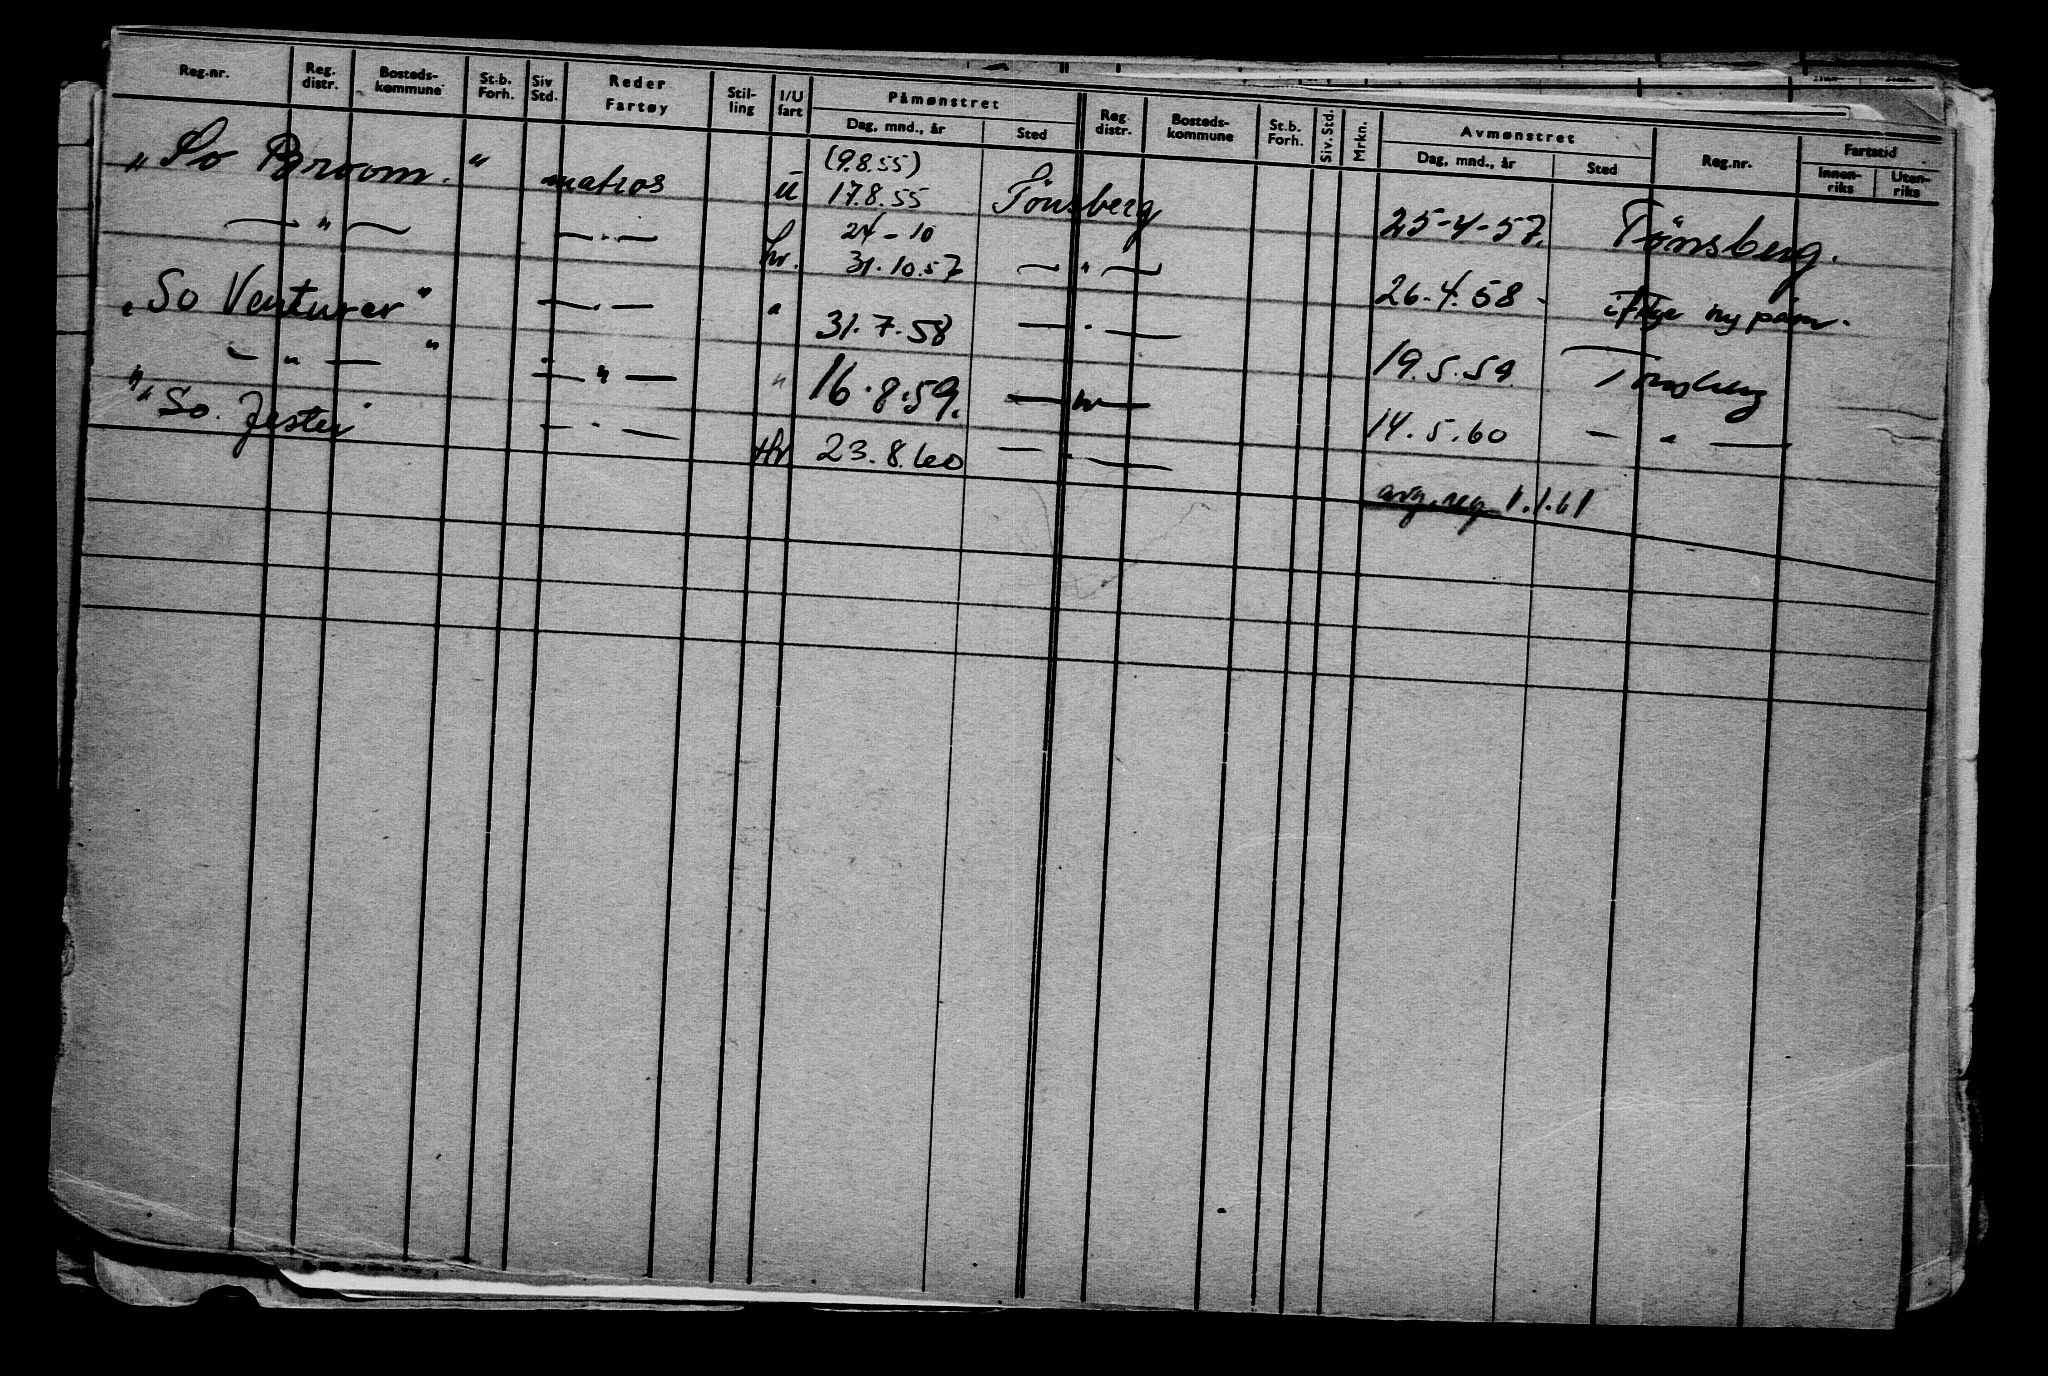 Reg.nr. Reg. distr. Bosteds-kommune St.b. Forh. Siv Std. Reder Fartøy Stil-ling I/U fart Påmønstret Dag, mnd., år Sted Reg. distr. Bosteds-kommune St.b. Forh. Siv. Std. Mrkn. Avmønstret Dag, mnd., år Sted Reg.nr. Fartstid Innen-riks Uten-riks
(9.8.55)
„So Broom." matros u 17.8.55 Tönsberg 25-4-57. Tönsberg.
— " — — " — hv. 24-10 31.10.57 — " — 26.4.58 - ifølge ny påm.
„So Venturer" — " — " 31.7.58 — " — 19.5.59 Tønsberg
— " — " — " — " 16.8.59. — " — 14.5.60 — " —
"„So. Jester — " — Hv 23.8.60 — " — avg. reg 1.1.61